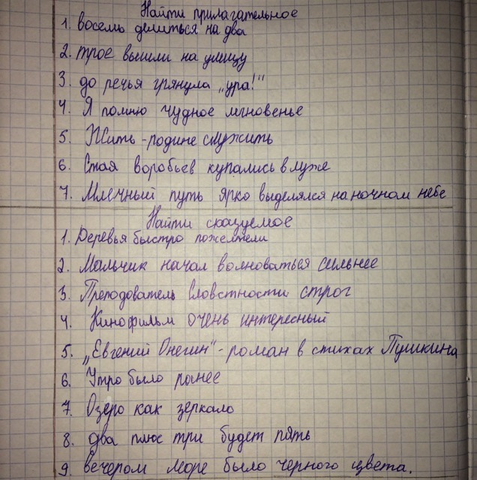 Найти прилагательное
1. восемь делиться на два
2. трое вышли на улицу
3. до речья грянула „ура!"
4. Я помню чудное мгновенье
5. Жить - родине служить
6. Стая воробьев купались в луже
7. Млечный путь ярко выделялся на ночном небе
Найти сказуемое
1. Деревья быстро пожелтели
2. Мальчик начал волноваться сильнее
3. Преподователь словстности строг
4. Кинофильм очень интересный
5. „Евгений Онегин" - роман в стихах Пушкина
6. Утро было раннее
7. Озеро как зеркало
8. два плюс три будет пять
9. вечером море было черного цвета.